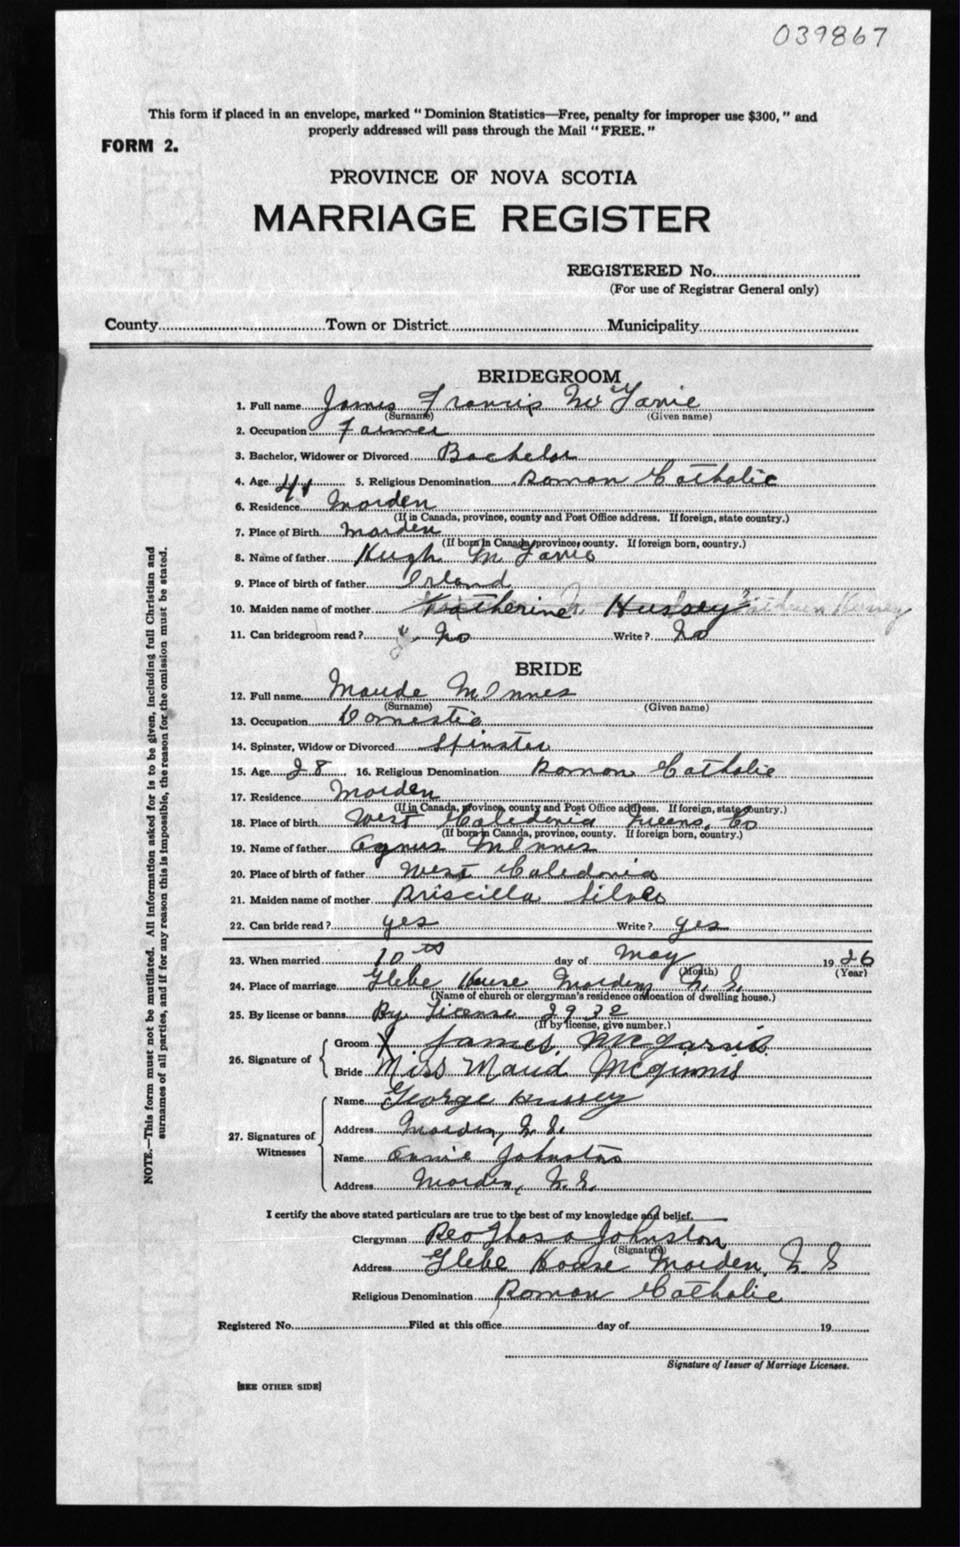 039867
This form if placed in an envelope, marked "Dominion Statistics—Free, penalty for improper use $300," and
properly addressed will pass through the Mail "FREE."
FORM 2.
PROVINCE OF NOVA SCOTIA
MARRIAGE REGISTER
REGISTERED No.
(For use of Registrar General only)
County Town or District Municipality
BRIDEGROOM
1. Full name James Francis
(Surname) (Given name)
2. Occupation Farmer
3. Bachelor, Widower or Divorced Bachelor
4. Age 41 5. Religious Denomination Roman Catholic
6. Residence Morden
(If in Canada, province, county and Post Office address. If foreign, state country.)
7. Place of Birth Morden
(If born in Canada, province, county. If foreign born, country.)
8. Name of father Hugh
9. Place of birth of father Irland
10. Maiden name of mother Katherine Hussey
11. Can bridegroom read? No Write? No
BRIDE
12. Full name Maude McInnes
(Surname) (Given name)
13. Occupation Domestic
14. Spinster, Widow or Divorced Spinster
15. Age 28 16. Religious Denomination Roman Catholic
17. Residence Morden
(If in Canada, province, county and Post Office address. If foreign, state country.)
18. Place of birth West Caledonia Queens Co
(If born in Canada, province, county. If foreign born, country.)
19. Name of father Agnus McInnes
20. Place of birth of father West Caledonia
21. Maiden name of mother Priscilla Silver
22. Can bride read? yes Write? yes
23. When married 10th day of May 1926
(Month) (Year)
24. Place of marriage Glebe House Morden, N.S.
(Name of church or clergyman's residence or location of dwelling house.)
25. By license or banns By License 2932
(If by license, give number.)
26. Signature of
Groom X James
Bride Miss Maud McGinnis
27. Signatures of Witnesses
Name George Hussey
Address Morden, N.S.
Name Annie Johnston
Address Morden, N.S.
I certify the above stated particulars are true to the best of my knowledge and belief.
Clergyman Johnston
(Signature)
Address Glebe House Morden, N S
Religious Denomination Roman Catholic
Registered No. Filed at this office day of 19
Signature of Issuer of Marriage Licenses.
[SEE OTHER SIDE]
NOTE.—This form must not be mutilated. All information asked for is to be given, including full Christian and
surnames of all parties, and if for any reason this is impossible, the reason for the omission must be stated.